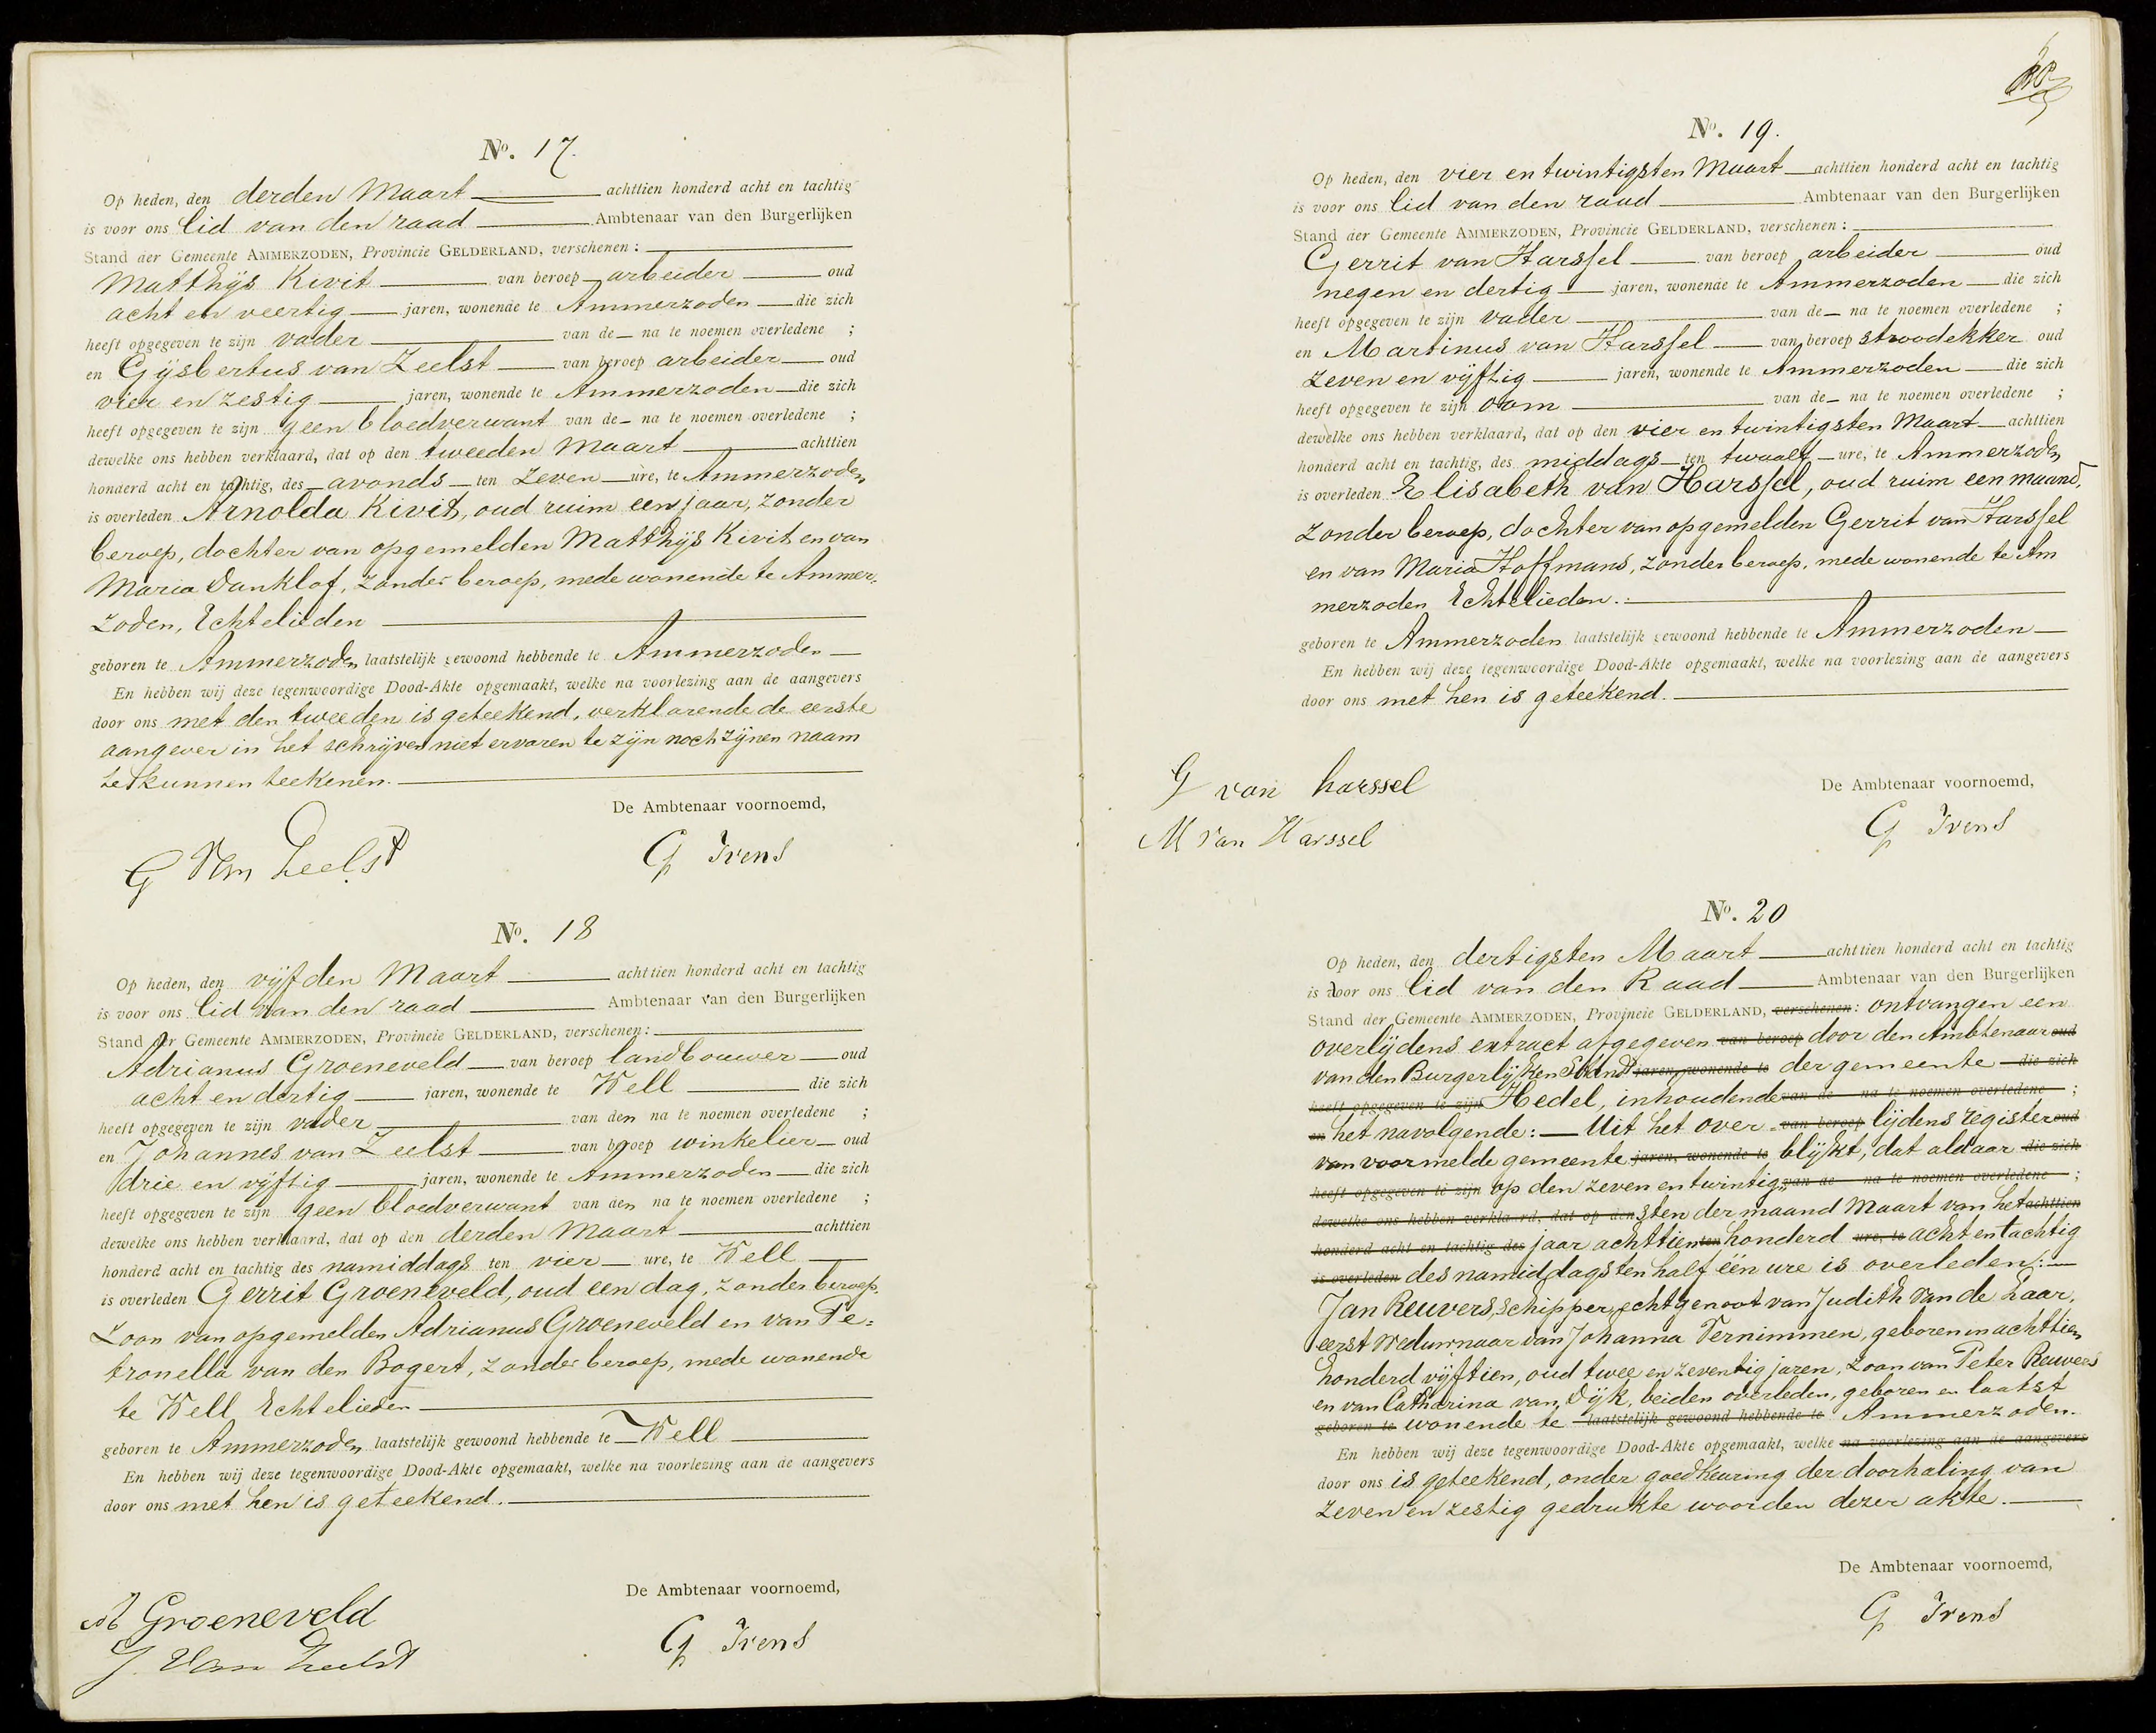 No. 17.
Op heden, den derden Maart achttien honderd acht en tachtig
is voor ons lid van den raad Ambtenaar van den Burgerlijken
Stand der Gemeente AMMERZODEN, Provincie GELDERLAND, verschenen:
Matthijs Kivit van beroep arbeider oud
acht en veertig jaren, wonende te Ammerzoden die zich
heeft opgegeven te zijn vader van de na te noemen overledene ;
en Gijsbertus van Zeelst van beroep arbeider oud
vier en zestig jaren, wonende te Ammerzoden die zich
heeft opgegeven te zijn geen bloedverwant van de na te noemen overledene ;
dewelke ons hebben verklaard, dat op den tweeden Maart achttien
honderd acht en tachtig, des avonds ten zeven ure, te Ammerzoden
is overleden Arnolda Kivit, oud ruim een jaar, zonder
beroep, dochter van opgemelden Matthijs Kivit en van
Maria Danklof, zonder beroep, mede wonende te Ammer=
zoden, Echtelieden
geboren te Ammerzoden laatstelijk gewoond hebbende te Ammerzoden
En hebben wij deze tegenwoordige Dood-Akte opgemaakt, welke na voorlezing aan de aangevers
door ons met den tweeden is geteekend, verklarende de eerste
aangever in het schrijven niet ervaren te zijn noch zijnen naam
te kunnen teekenen.
De Ambtenaar voornoemd,
G Van Zeelst
G Ivens
No. 18
Op heden, den vijfden Maart achttien honderd acht en tachtig
is voor ons lid van den raad Ambtenaar van den Burgerlijken
Stand der Gemeente AMMERZODEN, Provincie GELDERLAND, verschenen:
Adrianus Groeneveld van beroep landbouwer oud
acht en dertig jaren, wonende te Well die zich
heeft opgegeven te zijn vader van den na te noemen overledene ;
en Johannes van Zeelst van beroep winkelier oud
drie en vijftig jaren, wonende te Ammerzoden die zich
heeft opgegeven te zijn geen bloedverwant van den na te noemen overledene ;
dewelke ons hebben verklaard, dat op den derden Maart achttien
honderd acht en tachtig des namiddags ten vier ure, te Well
is overleden Gerrit Groeneveld, oud een dag, zonder beroep.
Zoon van opgemelden Adrianus Groeneveld en van Pe=
tronella van den Bogert, zonder beroep, mede wonende
te Well Echtelieden
geboren te Ammerzoden laatstelijk gewoond hebbende te Well
En hebben wij deze tegenwoordige Dood-Akte opgemaakt, welke na voorlezing aan de aangevers
door ons met hen is geteekend.
De Ambtenaar voornoemd,
A Groeneveld
J. Van Zeelst
G Ivens
No. 19.
Op heden, den vier en twintigsten Maart achttien honderd acht en tachtig
is voor ons lid van den raad Ambtenaar van den Burgerlijken
Stand der Gemeente AMMERZODEN, Provincie GELDERLAND, verschenen:
Gerrit van Harssel van beroep arbeider oud
negen en dertig jaren, wonende te Ammerzoden die zich
heeft opgegeven te zijn vader van de na te noemen overledene ;
en Martinus van Harssel van beroep stroodekker oud
zeven en vijftig jaren, wonende te Ammerzoden die zich
heeft opgegeven te zijn oom van de na te noemen overledene ;
dewelke ons hebben verklaard, dat op den vier en twintigsten Maart achttien
honderd acht en tachtig, des middags ten twaalf ure, te Ammerzoden
is overleden Elisabeth van Harssel, oud ruim een maand,
zonder beroep, dochter van opgemelden Gerrit van Harssel
en van Maria Hoffmans, zonder beroep, mede wonende te Am
merzoden Echtelieden.
geboren te Ammerzoden laatstelijk gewoond hebbende te Ammerzoden
En hebben wij deze tegenwoordige Dood-Akte opgemaakt, welke na voorlezing aan de aangevers
door ons met hen is geteekend.
De Ambtenaar voornoemd,
G van harssel
M van Harssel
G Ivens
No. 20
Op heden, den dertigsten Maart achttien honderd acht en tachtig
is door ons lid van den Raad Ambtenaar van den Burgerlijken
Stand der Gemeente AMMERZODEN, Provincie GELDERLAND, verschenen: ontvangen een
overlijdens extract afgegeven van beroep door den Ambtenaar oud
van den Burgerlijken Stand jaren, wonende te der gemeente die zich
heeft opgegeven te zijn Hedel, inhoudende van de na te noemen overledene ;
en het navolgende: Uit het over- van beroep lijdens register oud
van voormelde gemeente jaren, wonende te blijkt, dat aldaar die zich
heeft opgegeven te zijn op den zeven en twintig= van de na te noemen overledene ;
dewelke ons hebben verklaard, dat op den sten der maand Maart van het achttien
honderd acht en tachtig des jaar achttien ten honderd ure, te acht en tachtig
is overleden des namiddags ten half één ure is overleden:
Jan Reuvers, schipper, echtgenoot van Judith van de Laar,
eerst Weduwnaar van Johanna Vernimmen, geboren in achttien
honderd vijftien, oud twee en zeventig jaren, zoon van Peter Reuvers
en van Catharina van Dijk, beiden overleden, geboren en laatst
geboren te wonende te laatstelijk gewoond hebbende te Ammerzoden.
En hebben wij deze tegenwoordige Dood-Akte opgemaakt, welke na voorlezing aan de aangevers
door ons is geteekend, onder goedkeuring der doorhaling van
zeven en zestig gedrukte woorden dezer akte.
De Ambtenaar voornoemd,
G Ivens